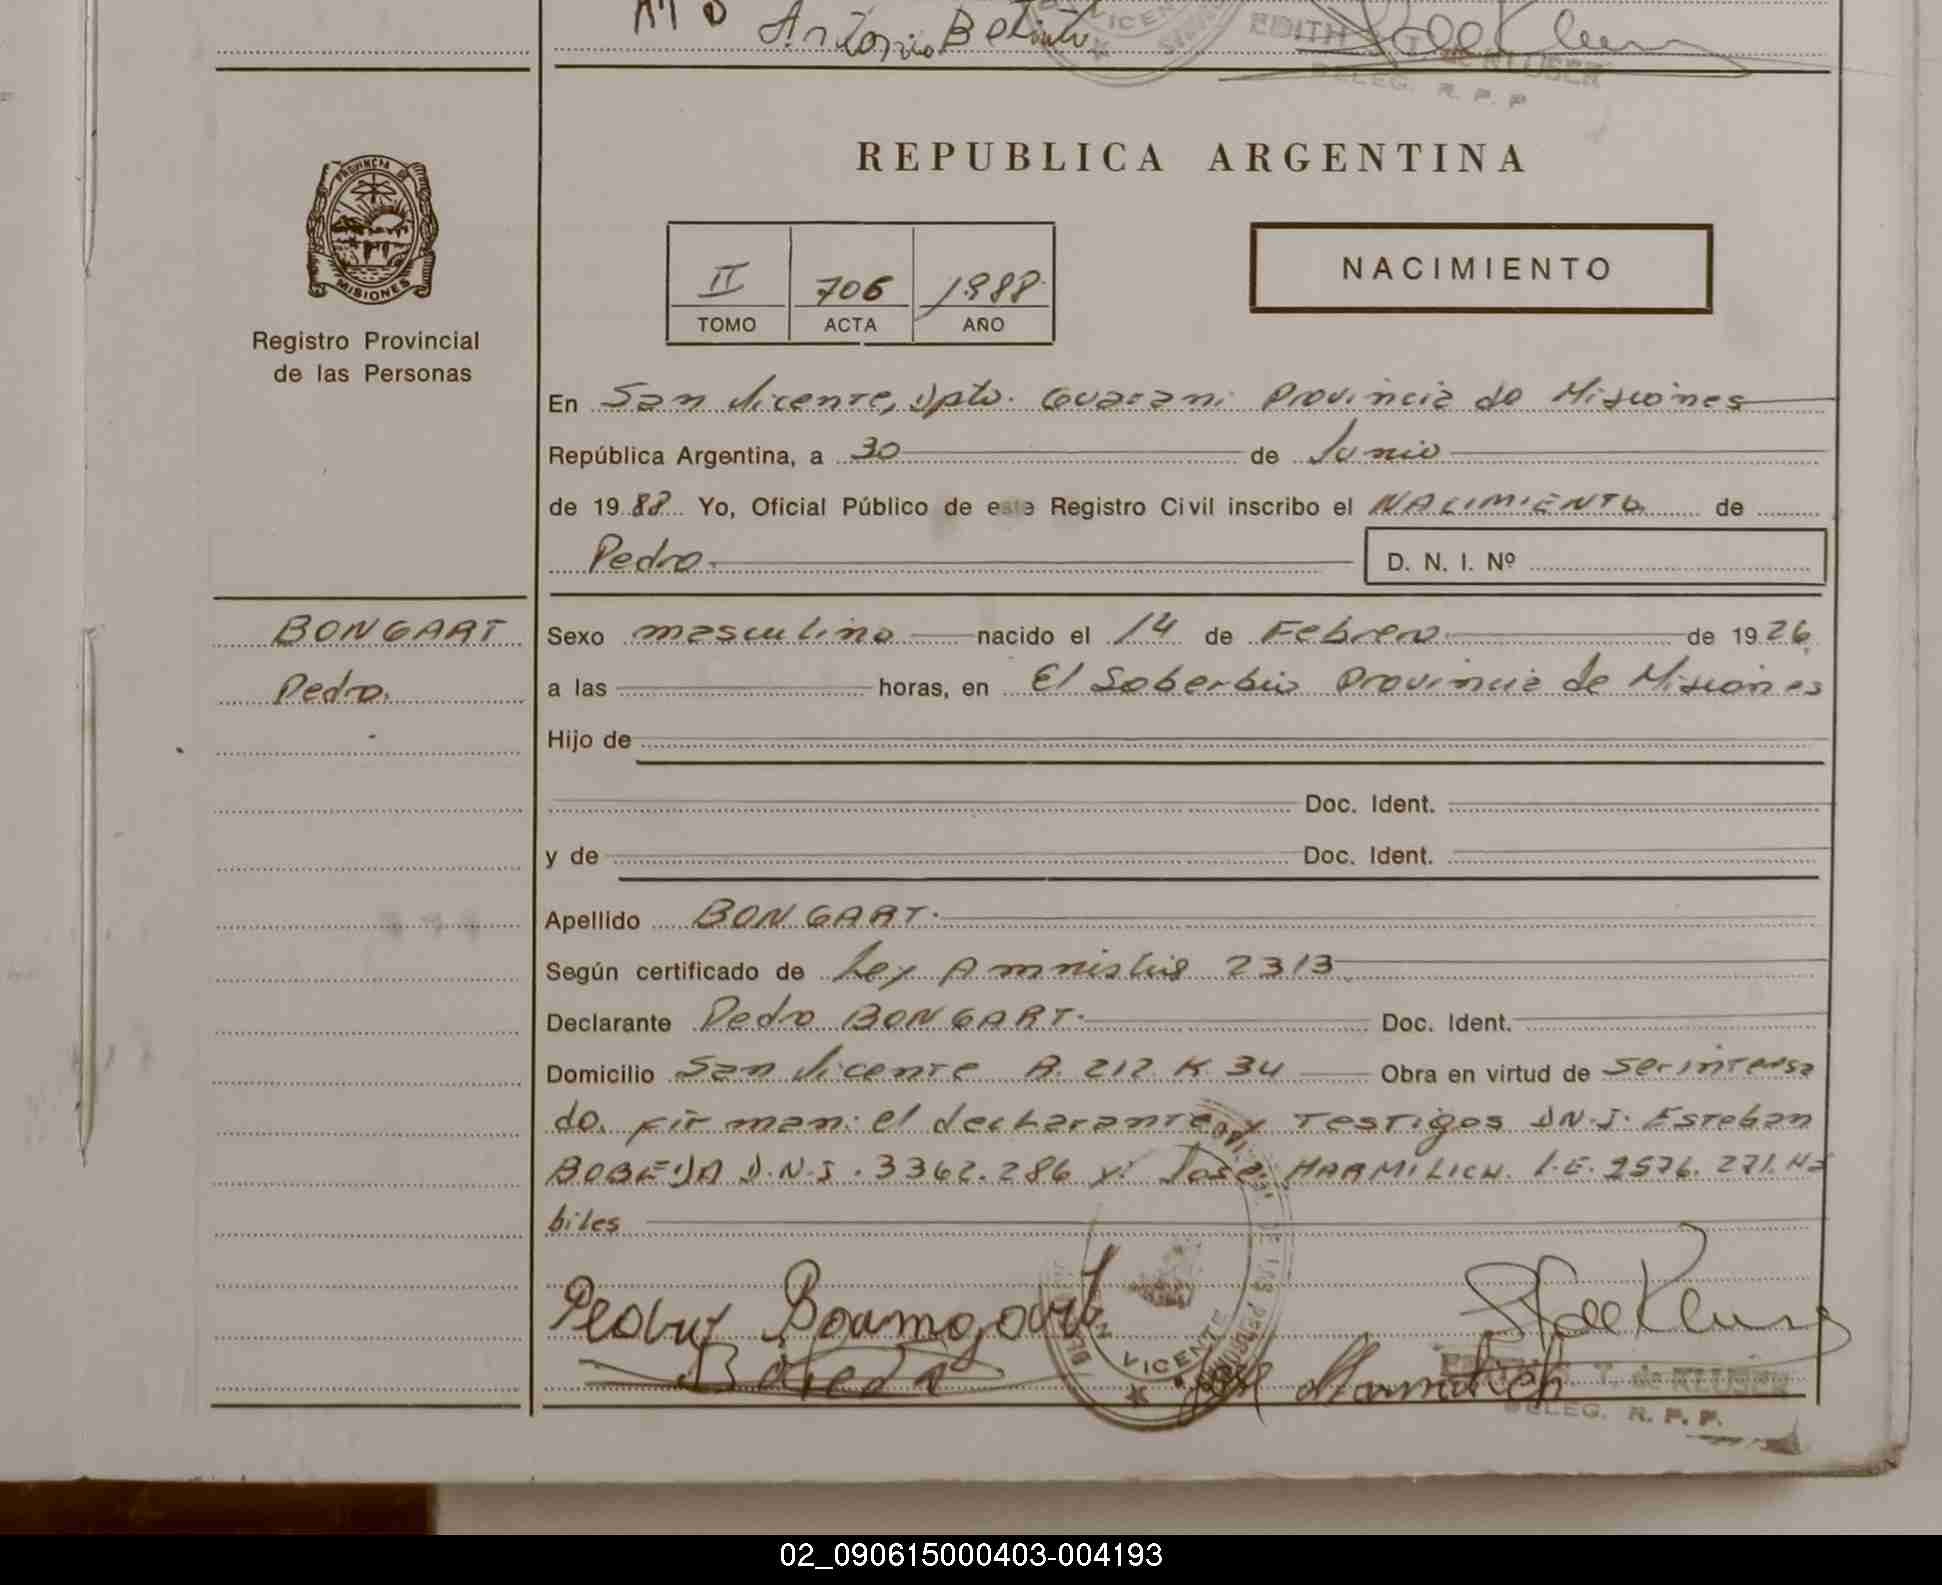 Antonio
VICEN
EDITH T. de KLUSER
DELEG. R. P. P.
REPUBLICA ARGENTINA
PROVINCIA DE
MISIONES
Registro Provincial
de las Personas
II 706 1988
TOMO ACTA AÑO
NACIMIENTO
En San Vicente, Dpto. Guarani Provincia de Misiones
República Argentina, a 30 de Junio
de 1988 Yo, Oficial Público de este Registro Civil inscribo el NACIMIENTO de
Pedro. D. N. I. Nº
BONGART
Pedro.
Sexo masculino nacido el 14 de Febrero de 1926
a las horas, en El Soberbio Provincia de Misiones
Hijo de
Doc. Ident.
y de Doc. Ident.
Apellido BONGART.
Según certificado de Ley Amnistia 2313
Declarante Pedro BONGART. Doc. Ident.
Domicilio San Vicente R. 212 K 34 Obra en virtud de ser interesa
do. firman: el declarante y Testigos DN.I. Esteban
BOBEDA D.N.I. 3362.286 y: Jose HARMILICH. L.E. 2576.271. Ha
biles
VICENTE
T. de KLUSER
DELEG. R. P. P.
02_090615000403-004193